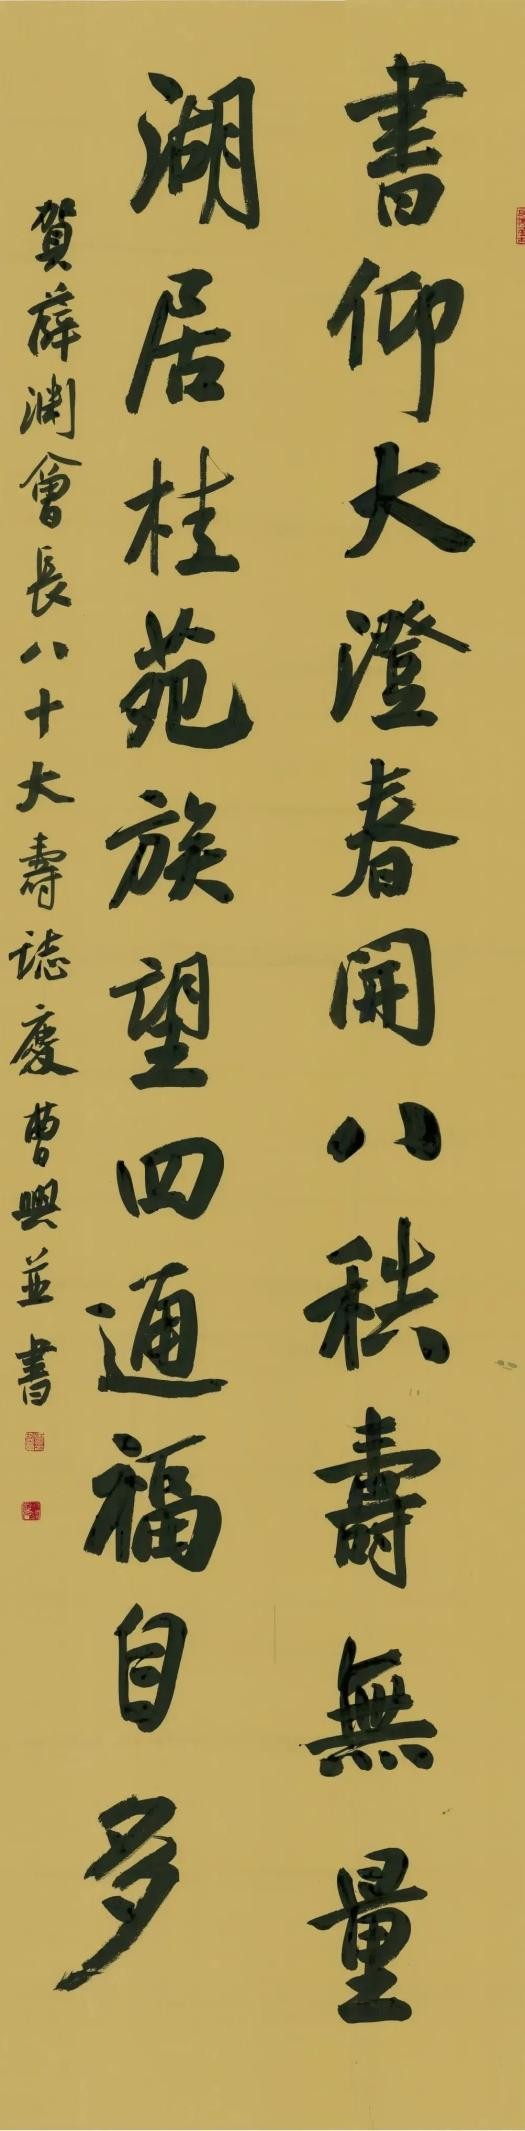 書仰大澄春開八秩壽無量
湖居桂苑族望四通福自多
賀薛渊會長八十大壽誌慶曹興並書